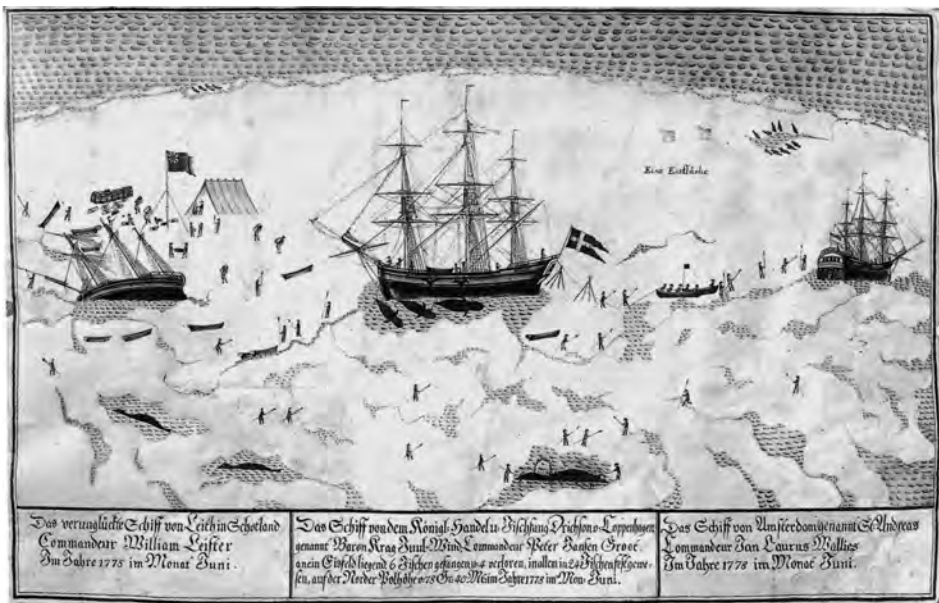 Eine Eisfläche
Das verunglückte Schiff von Leith in Schotland
Commandeur William Leister
Im Jahre 1778 im Monat Juni.
Das Schiff von dem Königl. Handel u. Fischfang Coppenhagen
genannt Baron Krag Juul Wind Commandeur Peter Jansen Groot.
an ein Eisfeld liegend 6 Fischen gefangen u. 4 verloren, in allen in 24 Fischen fest gewe-
sen, auf der Norder Polhöhe v. 78 Gr. 40 M. im Jahre 1778 im Mon. Juni.
Das Schiff von Amsterdam genannt St. Andreas
Commandeur Jan Laurus Wallies
Im Jahre 1778 im Monat Juni.